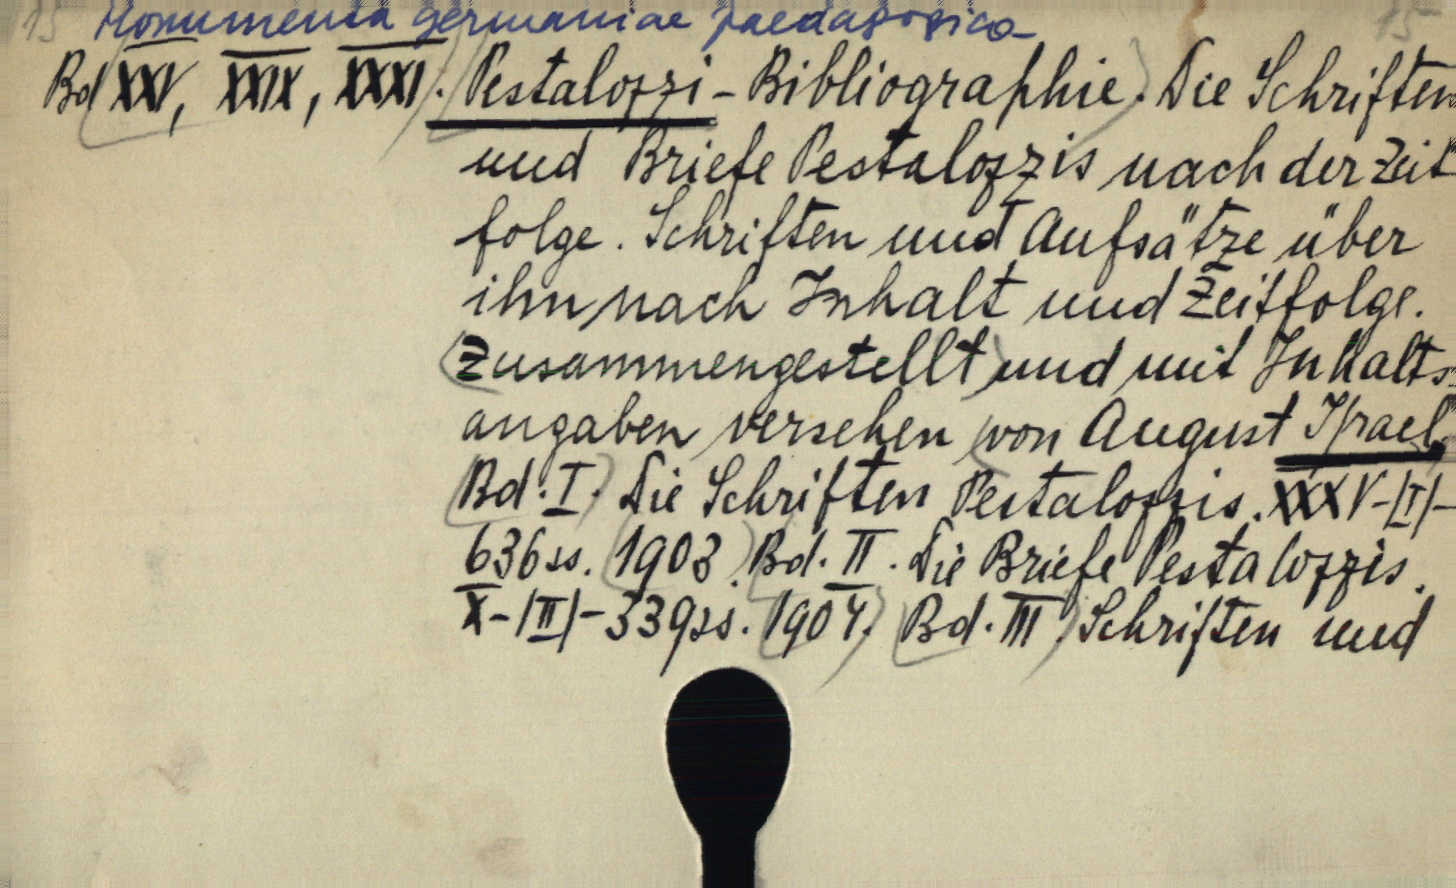 15 Monumenta germaniae paedagogica 15
Bd XXV, XXIX, XXXI. Pestalozzi-Bibliographie. Die Schriften
und Briefe Pestalozzis nach der Zeit
folge. Schriften und Aufsätze über
ihn nach Inhalt und Zeitfolge.
Zusammengestellt und mit Inhalts-
angaben versehen von August Israel,
Bd. I. Die Schriften Pestalozzis. XXXV-|I|-
636ss. 1903. Bd. II. Die Briefe Pestalozzis.
X-|II|-339ss. 1904. Bd. III. Schriften und